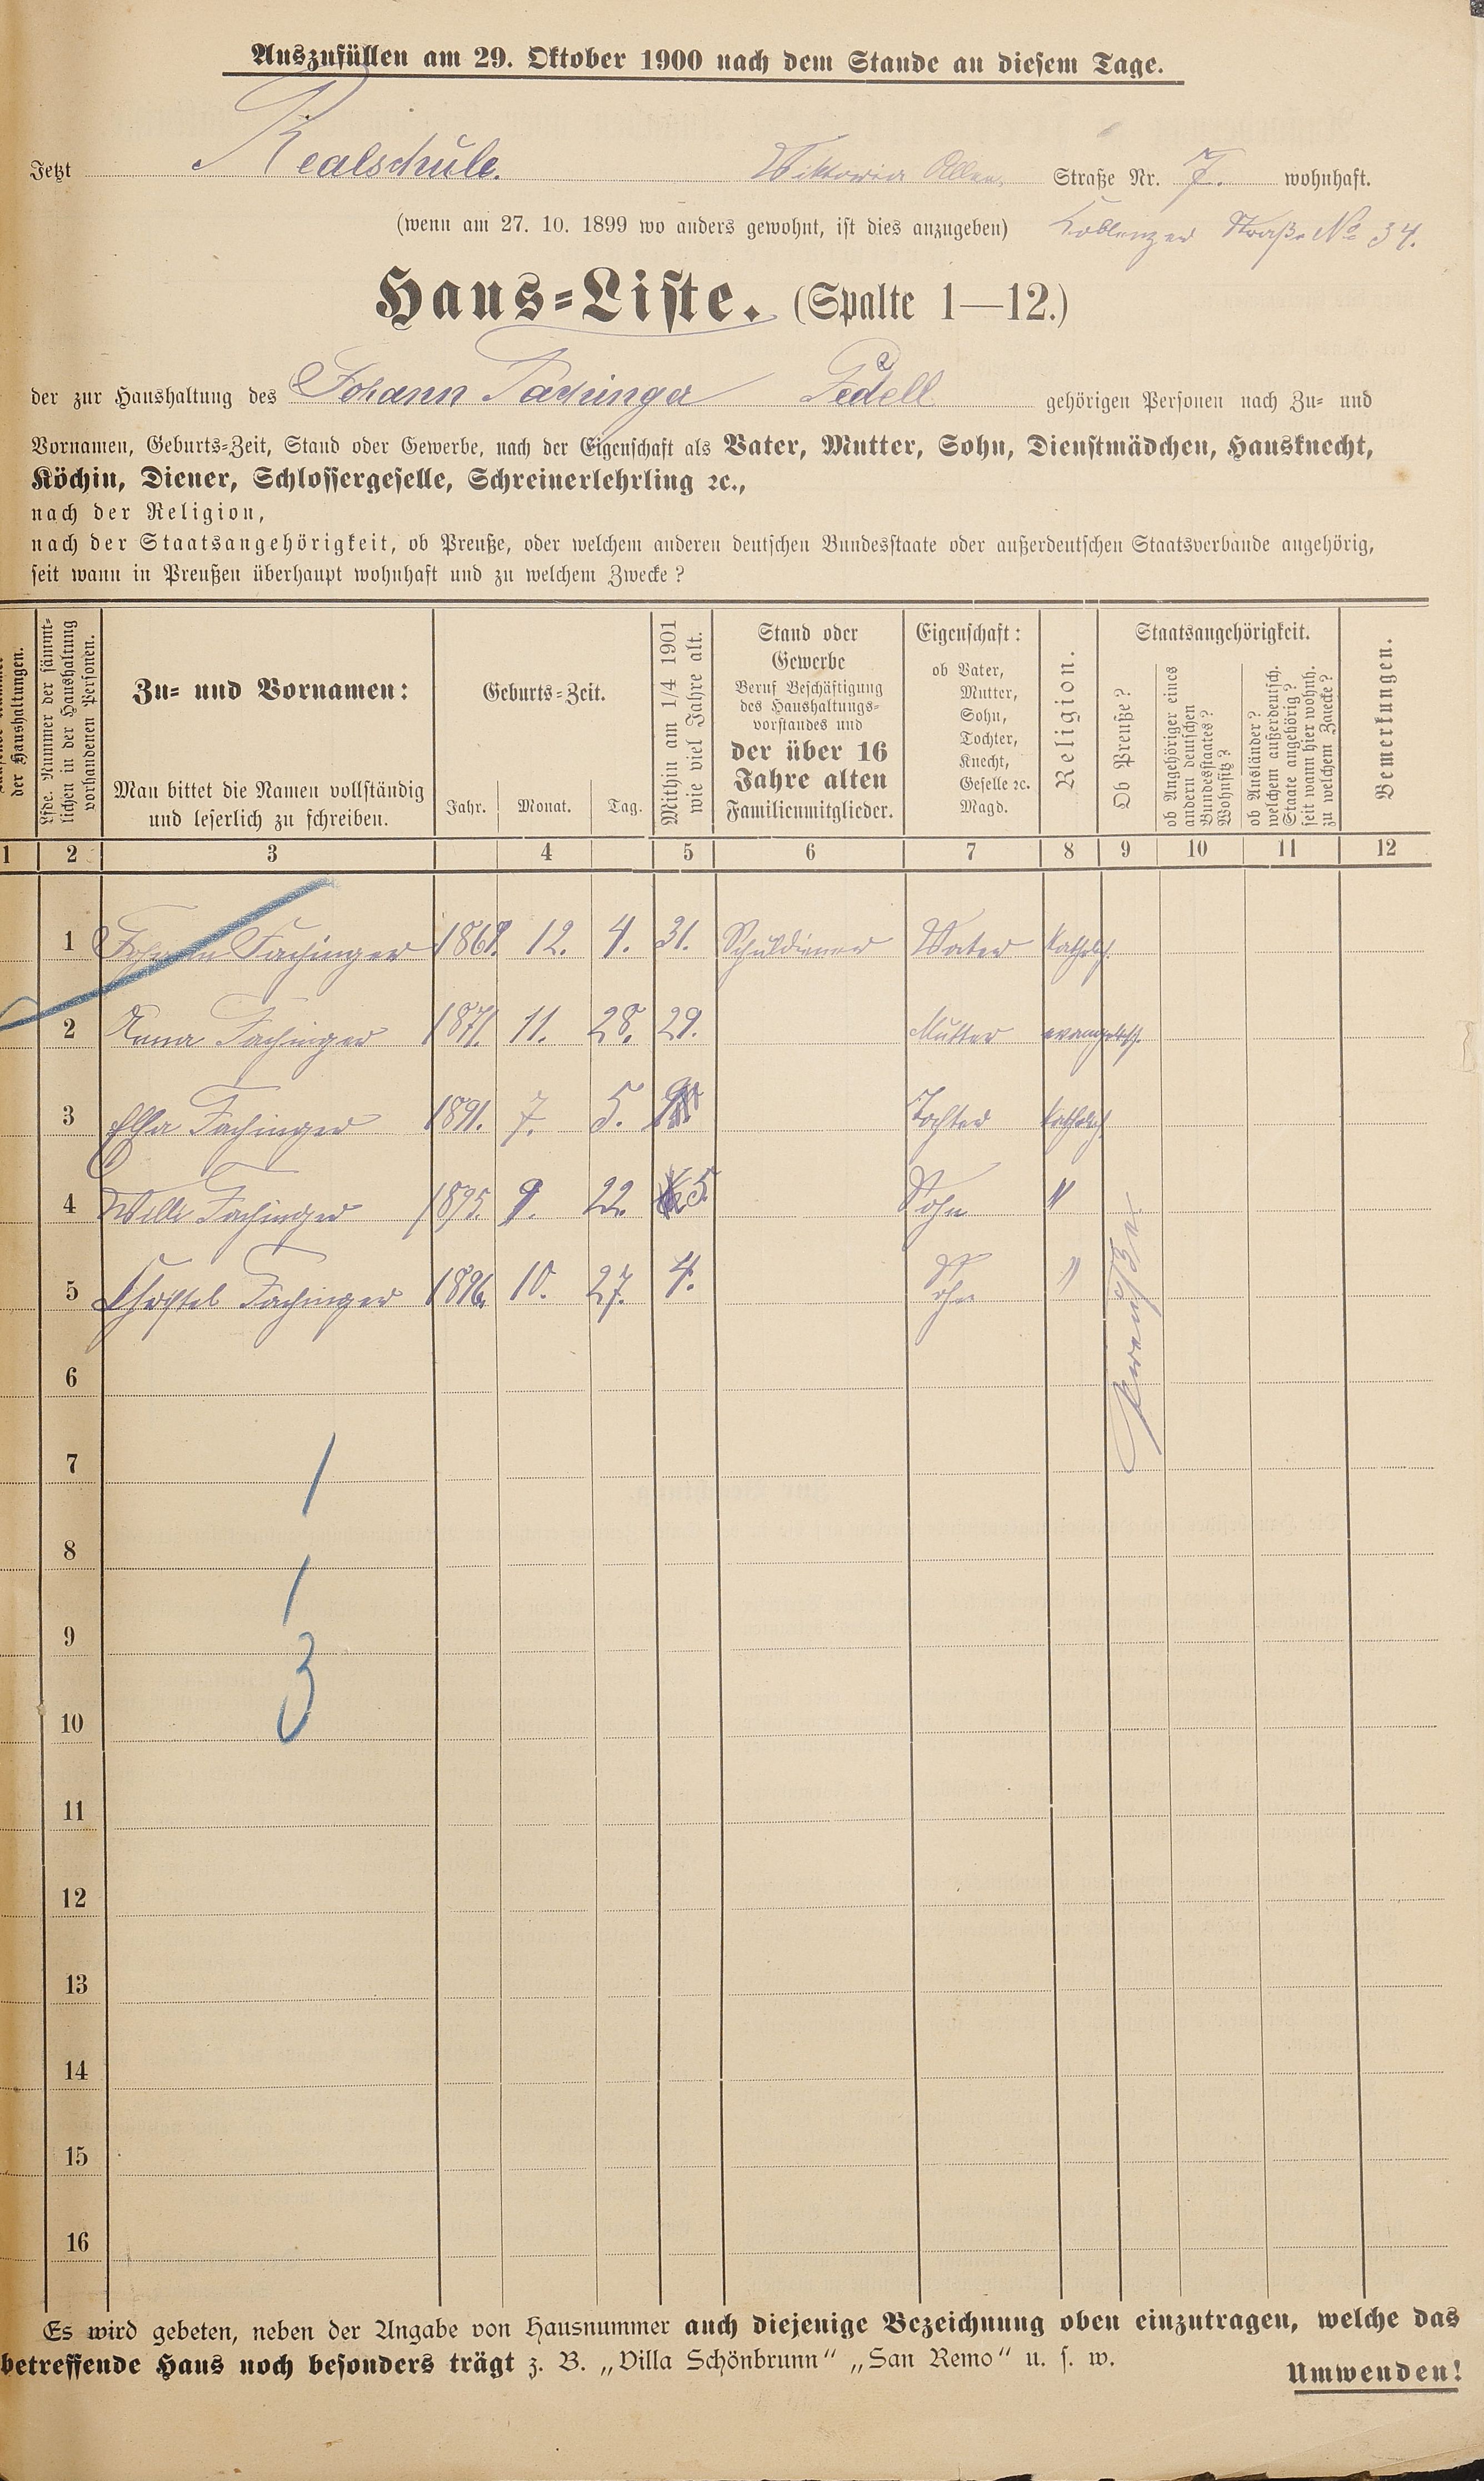 Auszufüllen am 29. Oktober 1900 nach dem Stande an diesem Tage.
Jetzt Realschule. Viktoria Allee, Straße Nr. 7. wohnhaft.
(wenn am 27. 10. 1899 wo anders gewohnt, ist dies anzugeben) Koblenzer Straße No 34.
Haus-Liste. (Spalte 1—12.)
der zur Haushaltung des Johann Fachinger Pedell gehörigen Personen nach Zu- und
Vornamen, Geburts-Zeit, Stand oder Gewerbe, nach der Eigenschaft als Vater, Mutter, Sohn, Dienstmädchen, Hausknecht,
Köchin, Diener, Schlossergeselle, Schreinerlehrling ꝛc.,
nach der Religion,
nach der Staatsangehörigkeit, ob Preuße, oder welchem anderen deutschen Bundesstaate oder außerdeutschen Staatsverbande angehörig,
seit wann in Preußen überhaupt wohnhaft und zu welchem Zwecke?
der Haushaltungen.
Lfde. Nummer der sämmt-
lichen in der Haushaltung
vorhandenen Personen.
Zu- und Vornamen:
Man bittet die Namen vollständig
und leserlich zu schreiben.
Geburts-Zeit.
Jahr. Monat. Tag.
Mithin am 1/4 1901
wie viel Jahre alt.
Stand oder
Gewerbe
Beruf Beschäftigung
des Haushaltungs-
vorstandes und
der über 16
Jahre alten
Familienmitglieder.
Eigenschaft:
ob Vater,
Mutter,
Sohn,
Tochter,
Knecht,
Geselle ꝛc.
Magd.
Religion.
Staatsangehörigkeit.
Ob Preuße?
ob Angehöriger eines
andern deutschen
Bundesstaates?
Wohnsitz?
ob Ausländer?
welchem außerdeutsch.
Staate angehörig?
seit wann hier wohnh.
zu welchem Zwecke?
Bemerkungen.
1 2 3 4 5 6 7 8 9 10 11 12
1 Johann Fachinger 1868. 12. 4. 31. Schuldiener Vater katholisch.
2 Anna Fachinger 1871. 11. 28. 29. Mutter evangelisch.
3 Elsa Fachinger 1891. 7. 5. Tochter katholisch
4 Willi Fachinger 1895. 9. 22. 5. Sohn "
5 Fachinger 1896. 10. 27. 4. Sohn "
Preuße
6
7
1
8
1
9
3
10
11
12
13
14
15
16
Es wird gebeten, neben der Angabe von Hausnummer auch diejenige Bezeichnung oben einzutragen, welche das
betreffende Haus noch besonders trägt z. B. „Villa Schönbrunn“ „San Remo“ u. s. w.
Umwenden!